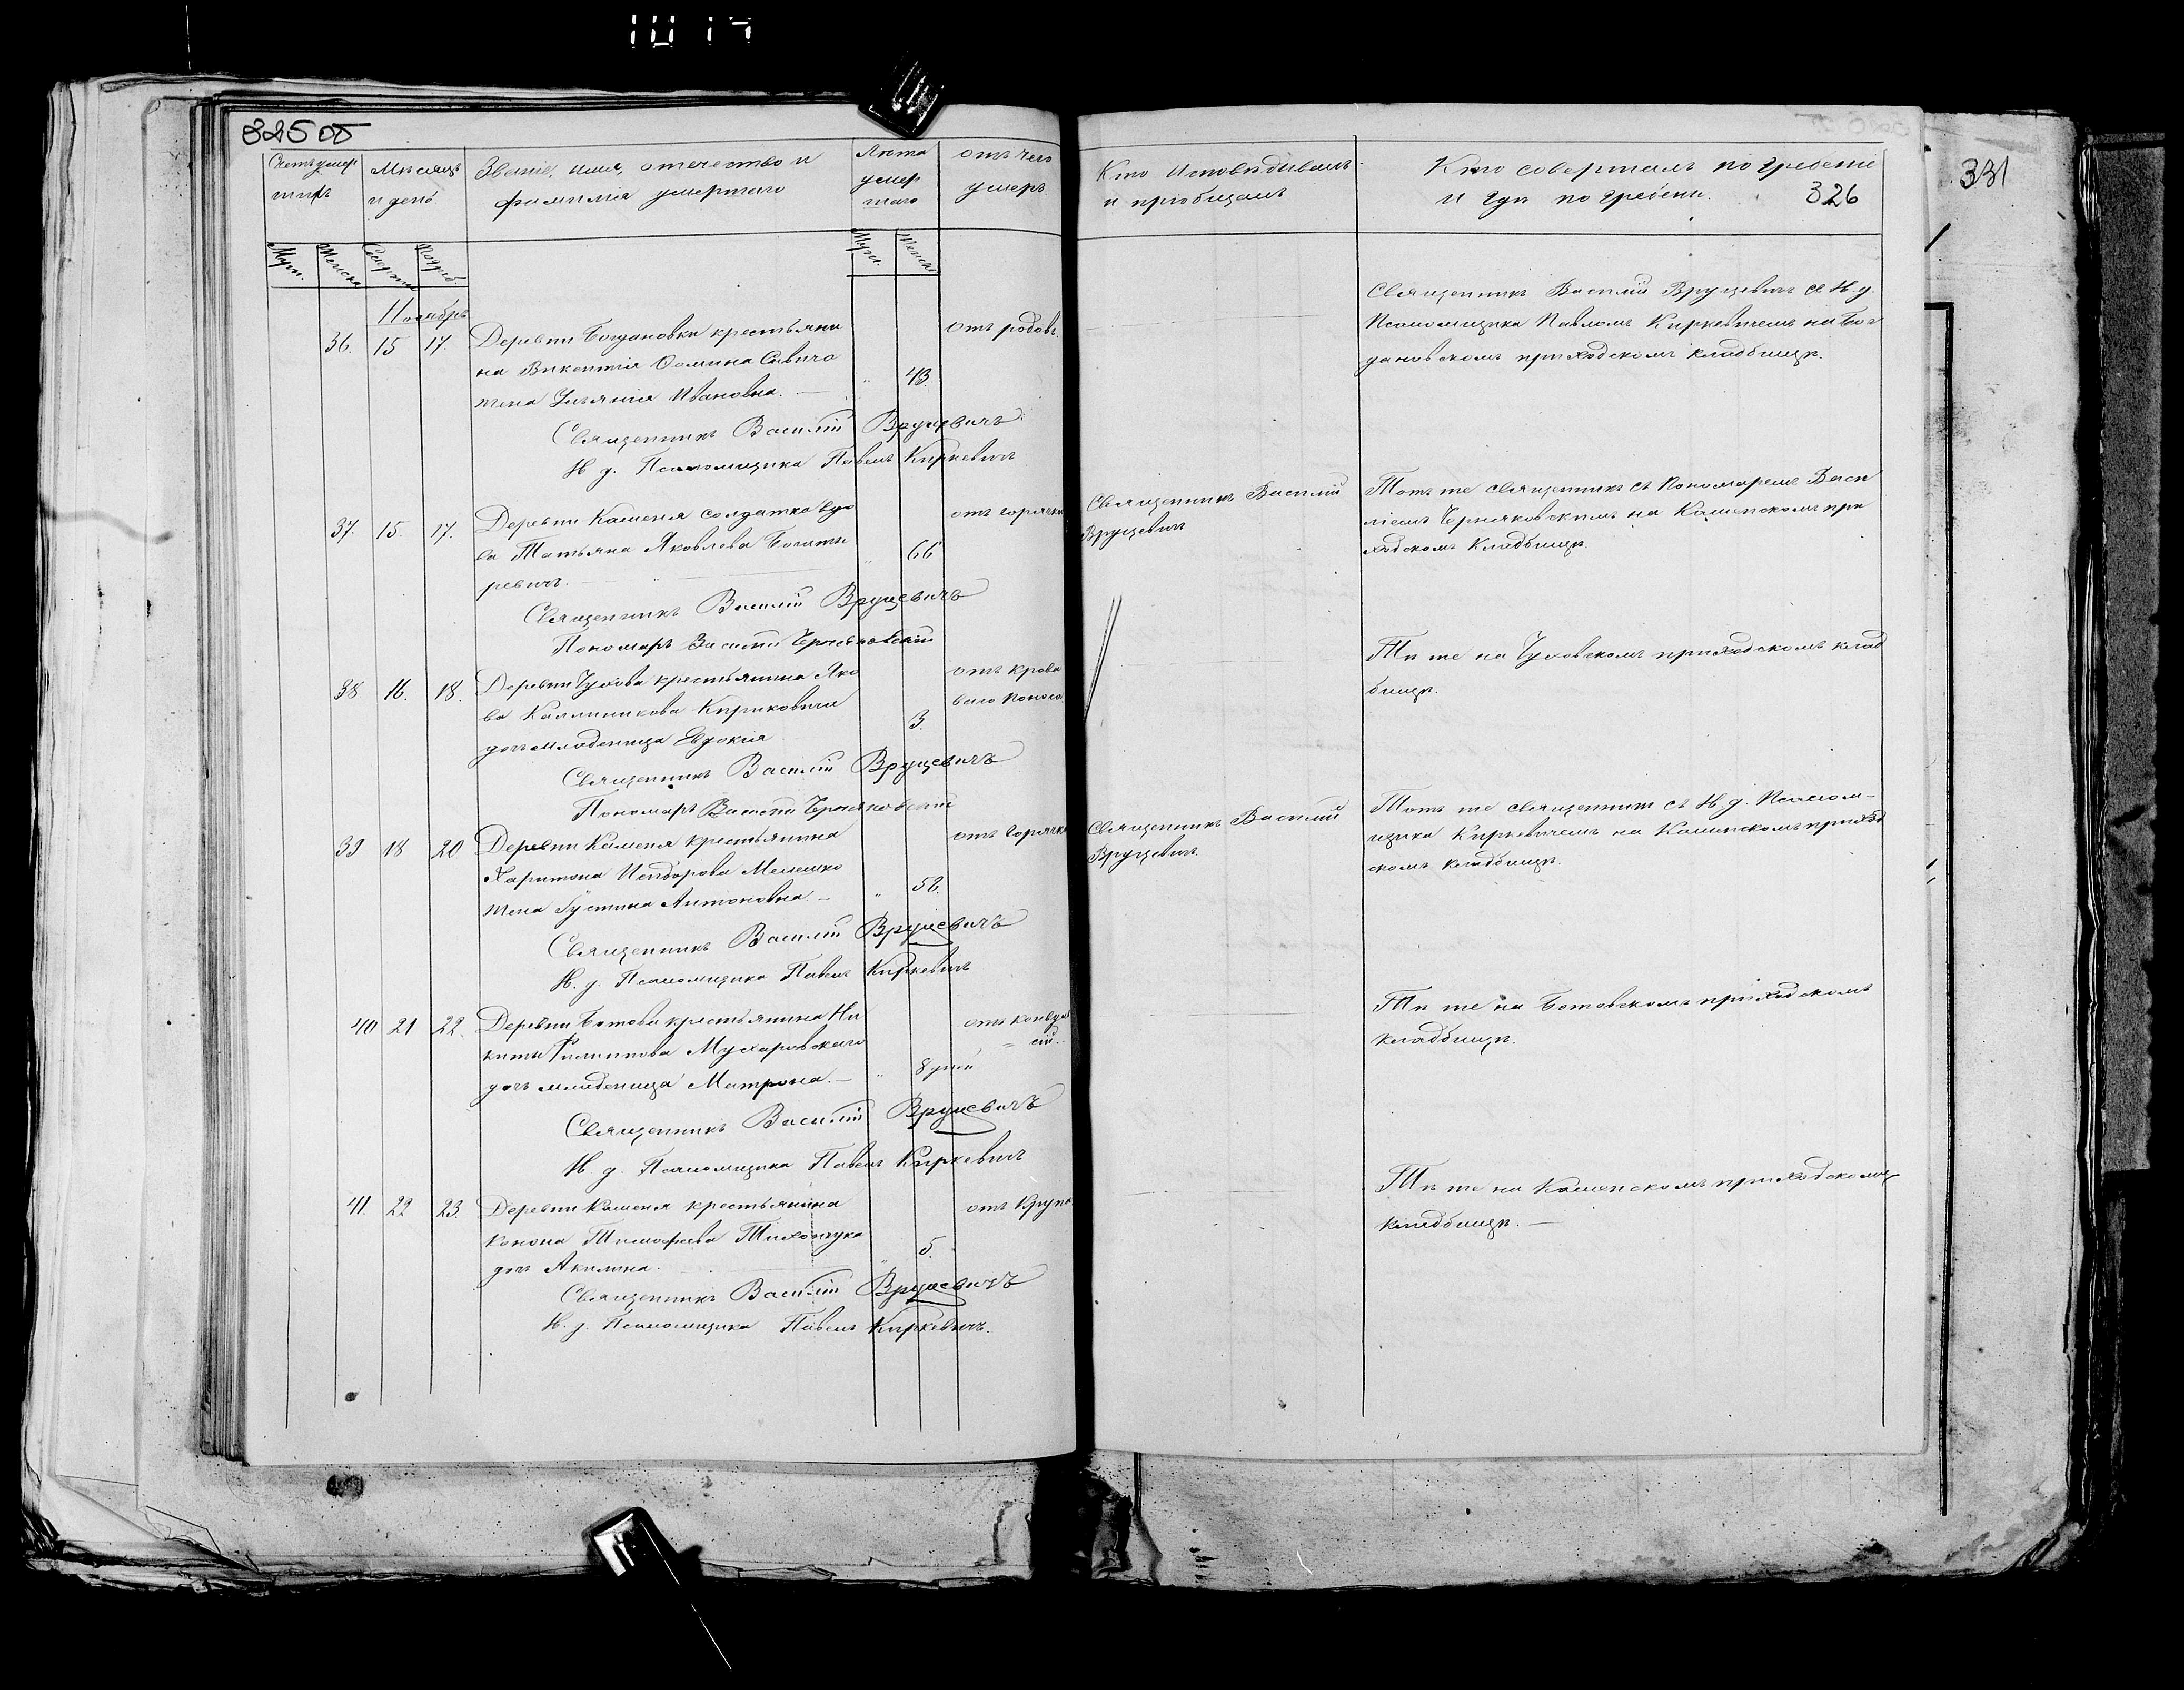 325 об
Счетъ умер
шихъ
Мѣсяцъ
и день
Званіе, имя, отечество и
фамилія умершаго
Лѣта
умер
шаго
отъ чего
умеръ.
Муж.
Женска
Смерти
Погреб.
Муж.
Женск.
Ноябрь
36. 15 17. Деревни Богдановки крестьяни отъ родовъ
на Викентія Ѳомина Савича
жена Ульянія Ивановна. — 43.
Священникъ Василій Вруцевичъ
И д. Псаломщика Павелъ Киркевичъ
37. 15. 17. Деревни Каменя солдатка вдо отъ горячки
ва Татьяна Яковлева Богаты
ревичъ. — " 66
Священникъ Василій Вруцевичъ
Пономарь Василій Черняковскій
38 16. 18. Деревни Чухова крестьянина Яко отъ крова
ва Каллиникова Кириковича ваго поноса
дочь младеница Евдокія 3.
Священникъ Василій Вруцевичъ
Пономарь Василій Черняковскій
39 18 20 Деревни Каменя крестьянина отъ горячки
Харитона Исидорова Мелешко
жена Густина Антоновна — " 58.
Священникъ Василій Вруцевичъ
И. д. Псаломщика Павелъ Киркевичъ
40 21 22. Деревни Ботова крестьянина Ни отъ конвуль
киты Филиппова Мухаровскаго = сій.
дочь младеница Матрона. — " 8 дней
Священникъ Василій Вруцевичъ
И д. Псаломщика Павелъ Киркевичъ
41. 22 23. Деревни Каменя крестьянина отъ крупа
Конона Тимофеева Тихончука
дочь Акилина. " 5.
Священникъ Василій Вруцевичъ
И. д. Псаломщика Павелъ Киркевичъ.
Кто исповѣдывалъ
и пріобщалъ
Кто совершалъ погребеніе
и гдѣ погребены. 326
331
Священникъ Василій Вруцевичъ съ И. д.
Псаломщика Павломъ Киркевичемъ на Бог
дановскомъ приходскомъ кладбищѣ.
Священникъ Василій
Вруцевичъ
Тотъ же священникъ съ Пономаремъ Васи
ліемъ Черняковскимъ на Каменскомъ при
ходскомъ кладбищѣ.
Тѣ же на Чуховскомъ приходскомъ клад
бищѣ.
Священникъ Василій
Вруцевичъ.
Тотъ же священникъ съ И. д. Псалом-
щика Киркевичемъ на Каменскомъ приход
скомъ кладбищѣ.
Тѣ же на Ботовскомъ приходскомъ
кладбищѣ.
Тѣ же на Каменскомъ приходскомъ
кладбищѣ. —